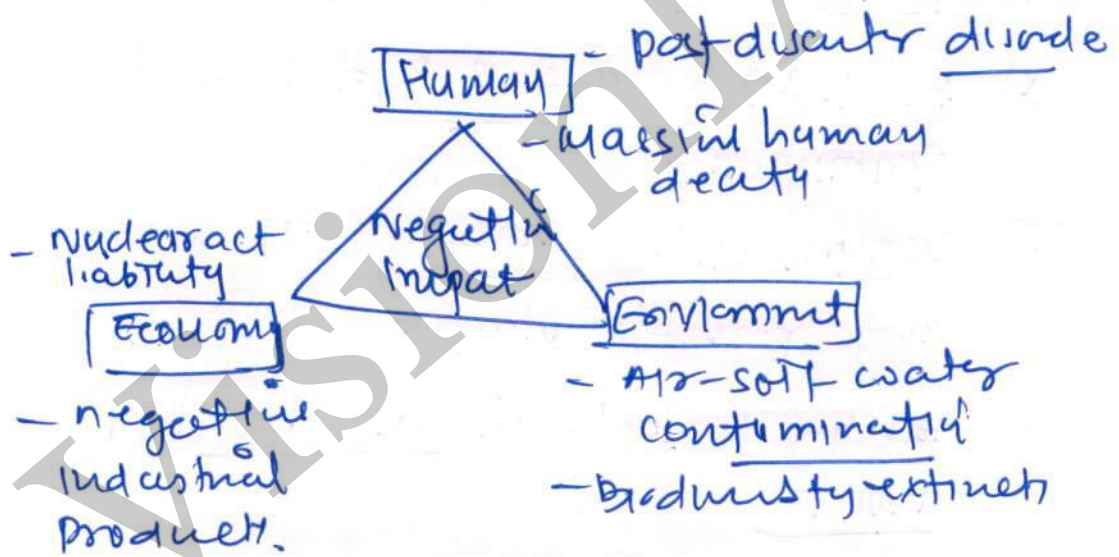 Human
- Post-disaster disorde
- Massive human
death
Negative
Impat
- Nuclear act
liability
Economy
- negative
industrial
product.
Enviornmnt
- Air-soil-water
contamination
- Biodiversity extinct
Vision